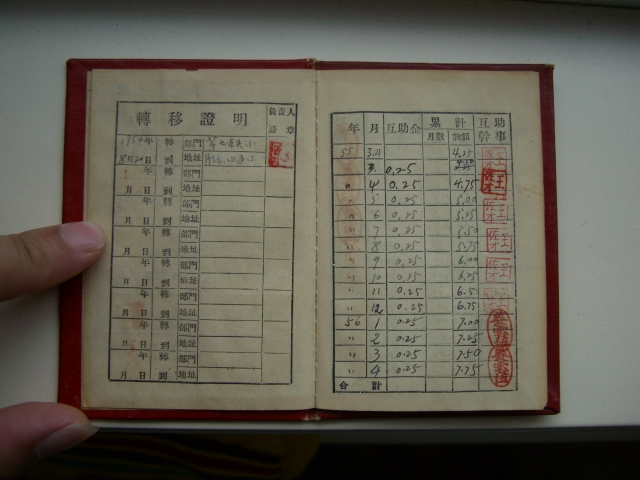 轉移證明 負責人
蓋章
1954年 轉 部門
8月20日 到 地址
年 轉 部門
月 日 到 地址
年 轉 部門
月 日 到 地址
年 轉 部門
月 日 到 地址
年 轉 部門
月 日 到 地址
年 轉 部門
月 日 到 地址
年 轉 部門
月 日 到 地址
年 轉 部門
月 日 到 地址
年 月 互助金 累計 互助
月數 款額 幹事
55 3.11 4.25
〃 3. 0.25
〃 4 0.25 4.75
〃 5 0.25 5.00
〃 6 0.25 5.25
〃 7 0.25 5.50
〃 8 0.25 5.75
〃 9 0.25 6.00
〃 10 0.25 6.25
〃 11 0.25 6.5
〃 12 0.25 6.75
56 1 0.25 7.00
〃 2 0.25 7.25
〃 3 0.25 7.50
〃 4 0.25 7.75
合計